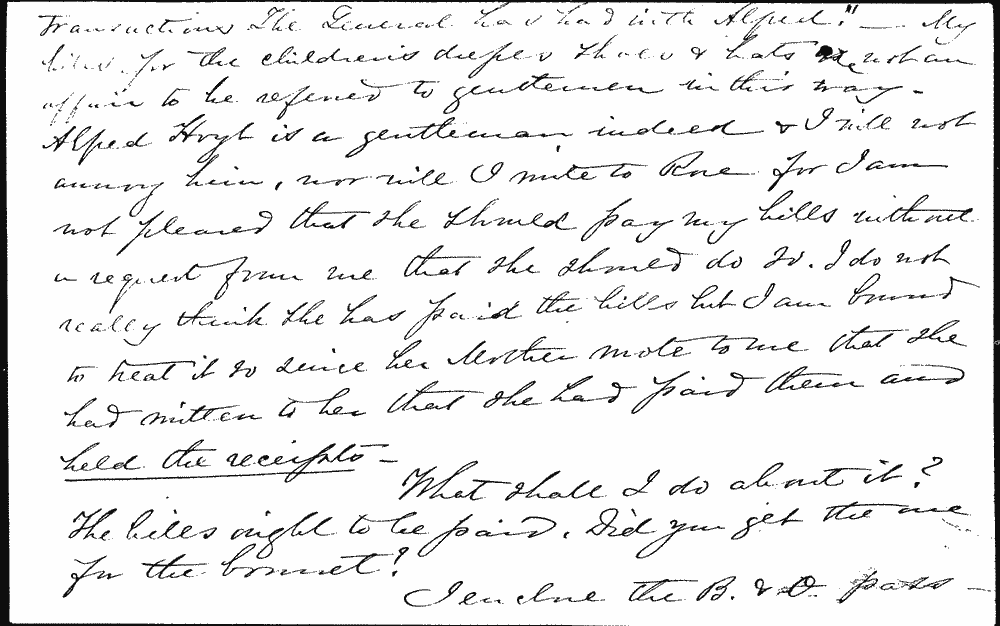 transactions The General has had with Alfred." — My
bills for the children's dresses shoes & hats are not an
affair to be referred to gentlemen in this way -
Alfred Hoyt is a gentleman indeed & I will not
annoy him, nor will I write to Rose for I am
not pleased that she should pay my bills without
a request from me that she should do so. I do not
really think she has paid the bills but I am bound
to treat it so since her Mother wrote to me that she
had written to her that she had paid them and
held the receipts -
What shall I do about it?
The bills ought to be paid. Did you get the one
for the bonnet?
I enclose the B. & O. pass -